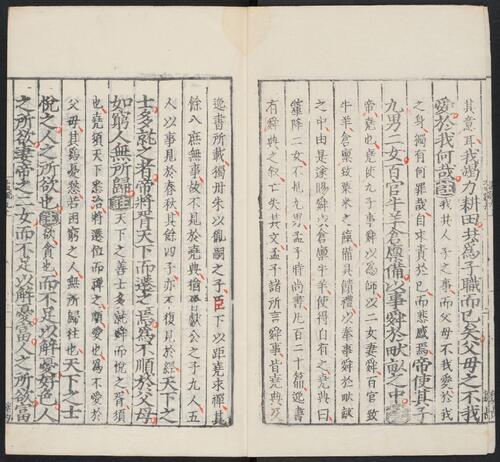 其意耳我竭力耕田共為子職而已矣父母之不我
愛於我何哉注我共人子之事而父母不我愛於我
之身獨有何罪哉自求責於己而悲感焉帝使其子
九男二女百官牛羊倉廩備以事舜於畎畝之中注
帝堯也堯使九子事舜以為師以二女妻舜百官致
牛羊倉廩致粟米之餼備具饋禮以奉事舜於畎畝
之中由是遂賜舜以倉廩牛羊使得自有之堯典曰
釐降二女不見九男孟子時尚書凡百二十篇逸書
有舜典之叙亡失其文孟子諸所言舜事皆堯典及
逸書所載獨丹朱以胤嗣之子臣下以距堯求禪其
餘八庶無事故不見於堯典猶晉獻公之子九人五
人以事見於春秋其餘四子亦不復見於經天下之
士多就之者帝將胥天下而遷之焉為不順於父母
如窮人無所歸注天下之善士多就舜而悅之胥須
也堯須天下悉治將遷位而禪之順愛也為不愛於
父母其為憂愁若困窮之人無所歸往也天下之士
悅之人之所欲也注欲貪也而不足以解憂好色人
之所欲妻帝之二女而不足以解憂富人之所欲富